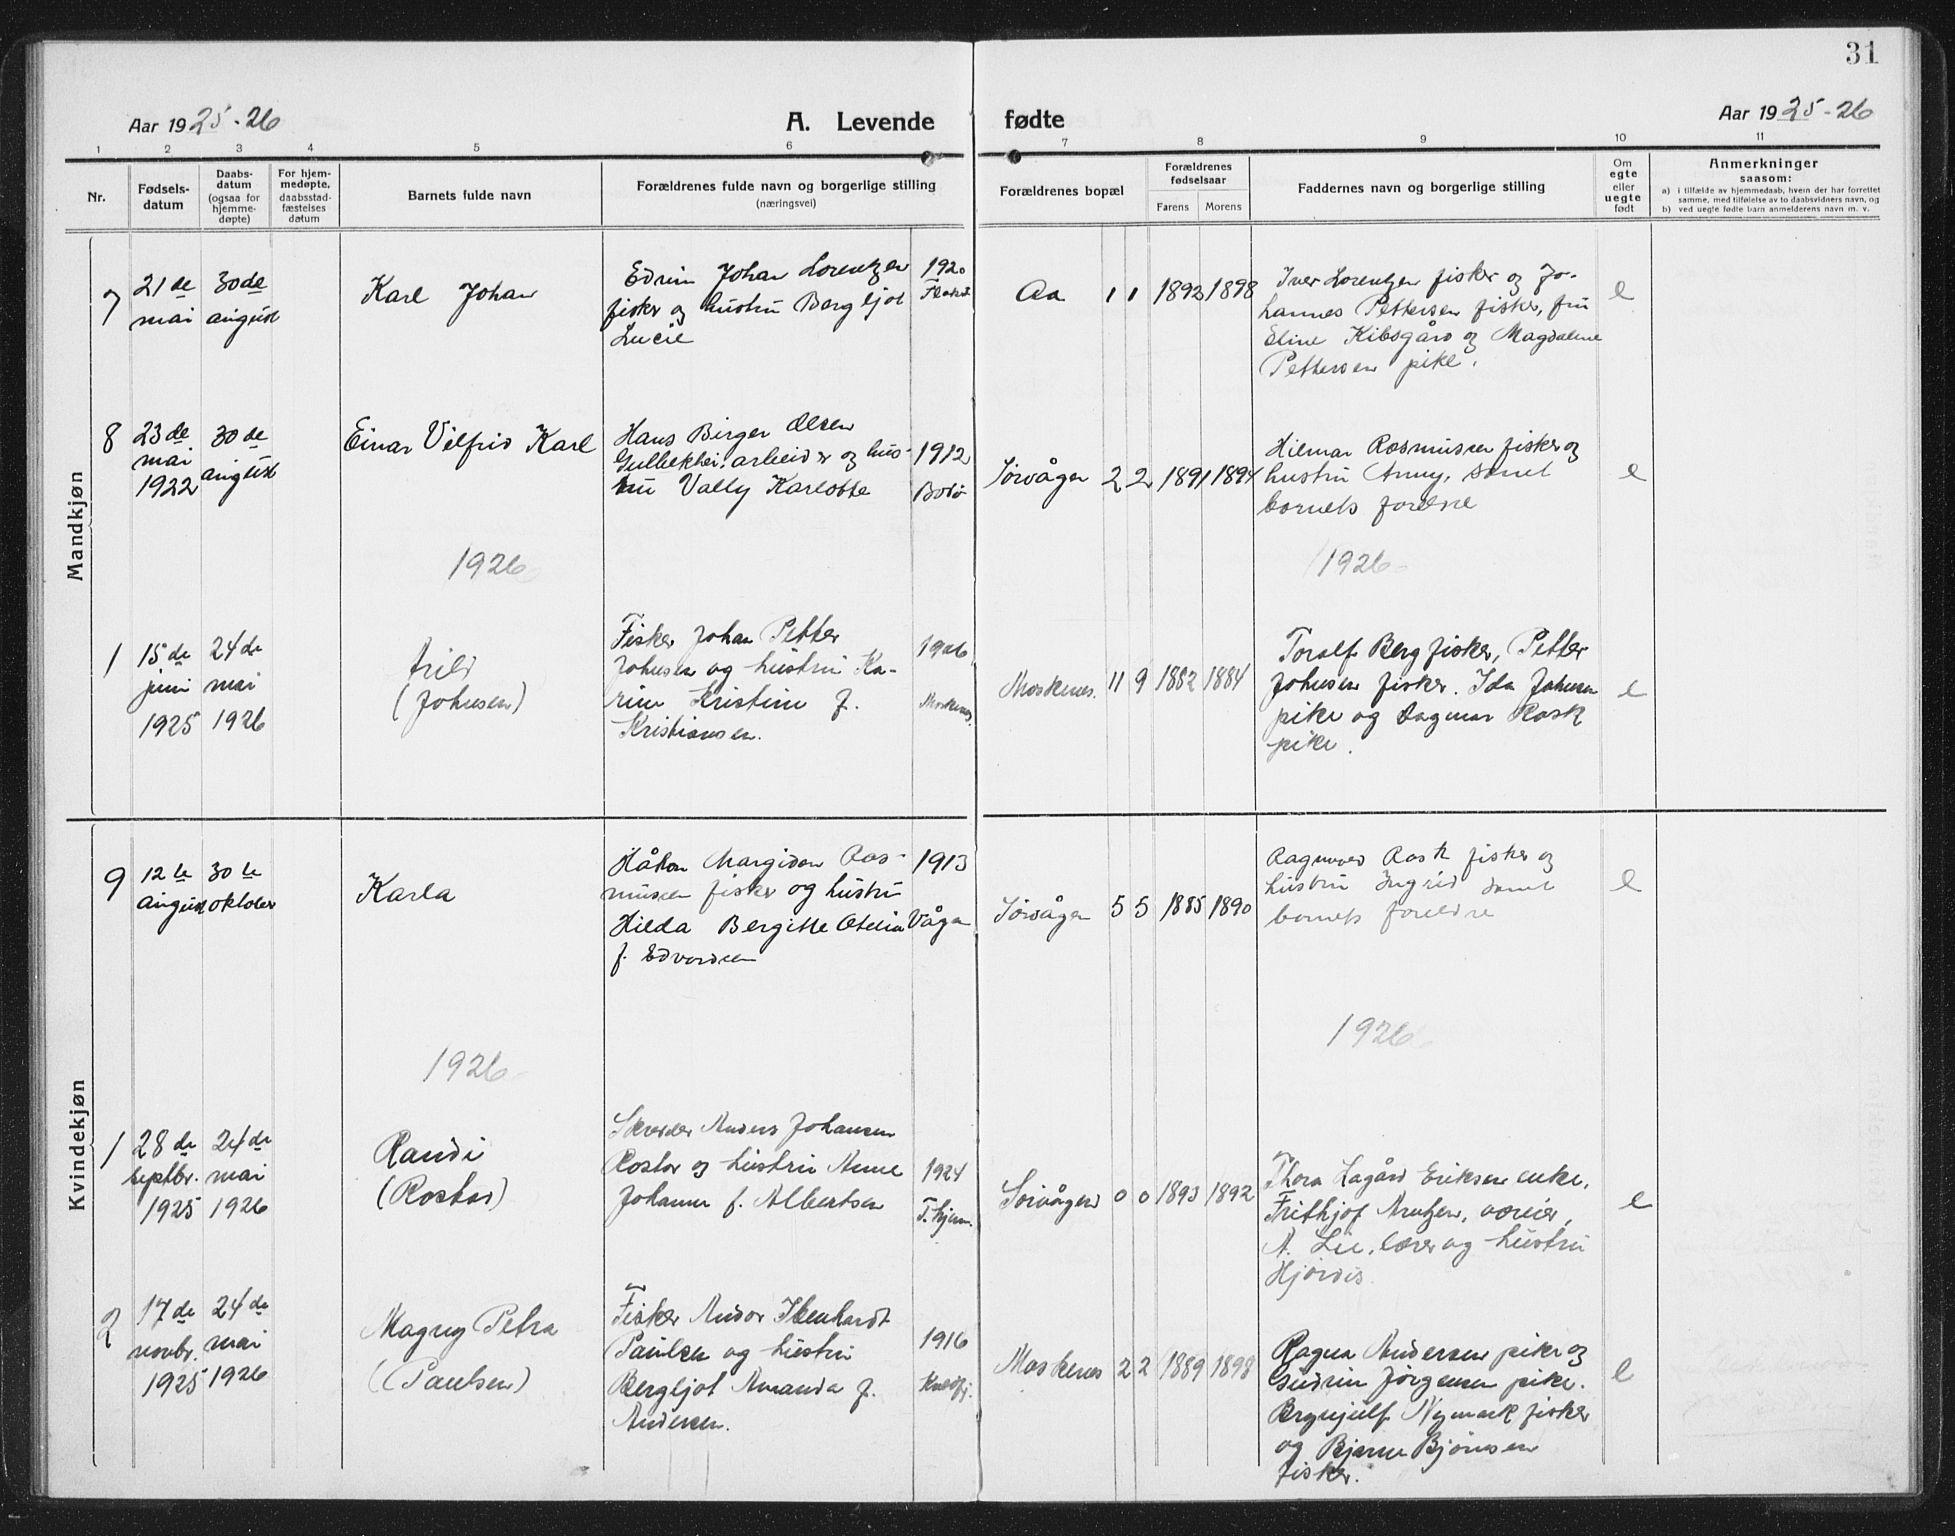 31
Aar 1925-26
A. Levende fødte
Aar 1925-26
1 2 3 4 5 6 7 8 9 10 11
Nr.
Fødsels-
datum
Daabs-
datum
(ogsaa for
hjemme-
døpte)
For hjem-
medøpte,
daabsstad-
fæstelses
datum
Barnets fulde navn
Forældrenes fulde navn og borgerlige stilling
(næringsvei)
Forældrenes bopæl
Forældrenes
fødselsaar
Farens Morens
Faddernes navn og borgerlige stilling
Om
egte
eller
uegte
født
Anmerkninger
saasom:
a) i tilfælde av hjemmedaab, hvem der har forrettet
samme, med tilføielse av to daabsvidners navn, og
b) ved uegte fødte barn anmelderens navn m. v.
Mandkjøn
7
21de
mai
30de
august
Karl Johan
Edvin Johan Lorentzen
fisker og hustru Bergljot
Lucie
1920
Aa
1 1
1892 1898
Iver Lorentzen fisker og Jo-
hannes Pettersen fisker, fru
Eline Kibsgård og Magdalene
Pettersen pike.
e
8
23de
mai
1922
30de
august
Einar Vilfrid Karl
Hans Birger Olsen
arbeider og hus-
tru Vally Karlotte
1912
Bodø
Sørvågen
2 2
1891 1894
Hilmar Rasmussen fisker og
hustru Anny, samt
barnets foreldre
e
1926
1926
1
15de
juni
1925
24de
mai
1926
Arild
(Johnsen)
Fisker Johan Petter
Johnsen og hustru Ka-
rine Kristine f.
Kristiansen.
1906
Moskenes.
Moskenes.
11 9
1882 1884
Toralf Berg fisker, Petter
Johnsen fisker. Ida Johnsen
pike og Dagmar Rask
pike.
e
Kvindekjøn
9
12te
august
30te
oktober
Karla
Håkon Margidon Ras-
mussen fisker og hustru
Hilda Bergitte Otelia
f. Edvardsen
1913
Vågan
Sørvågen
5 5
1885 1890
Ragnvald Rask fisker og
hustru Ingrid samt
barnets foreldre
e
1926
1926
1
28de
septbr.
1925
24de
mai
1926
Randi
(Rostad)
Skreder Anders Johansen
Rostad og hustru Anne
Johanne f. Albertsen
1924
Tr.hjem.
Sørvågen
0 0
1893 1892
Thora Lagård Eriksen enke,
Frithjof Arntzen, væreier,
A. Lie, lærer og hustru
Hjørdis.
e
2
17de
novbr.
1925
24de
mai
1926
Magny Petra
(Paulsen)
Fisker Andor Ibenhardt
Paulsen og hustru
Bergljot Amanda f.
Andersen.
1916
Moskenes
2 2
1889 1898
Ragna Andersen pike og
Gudrun Jørgensen pike.
Brynjulf Nymark fisker
og Bjarne Bjørnsen
fisker.
e